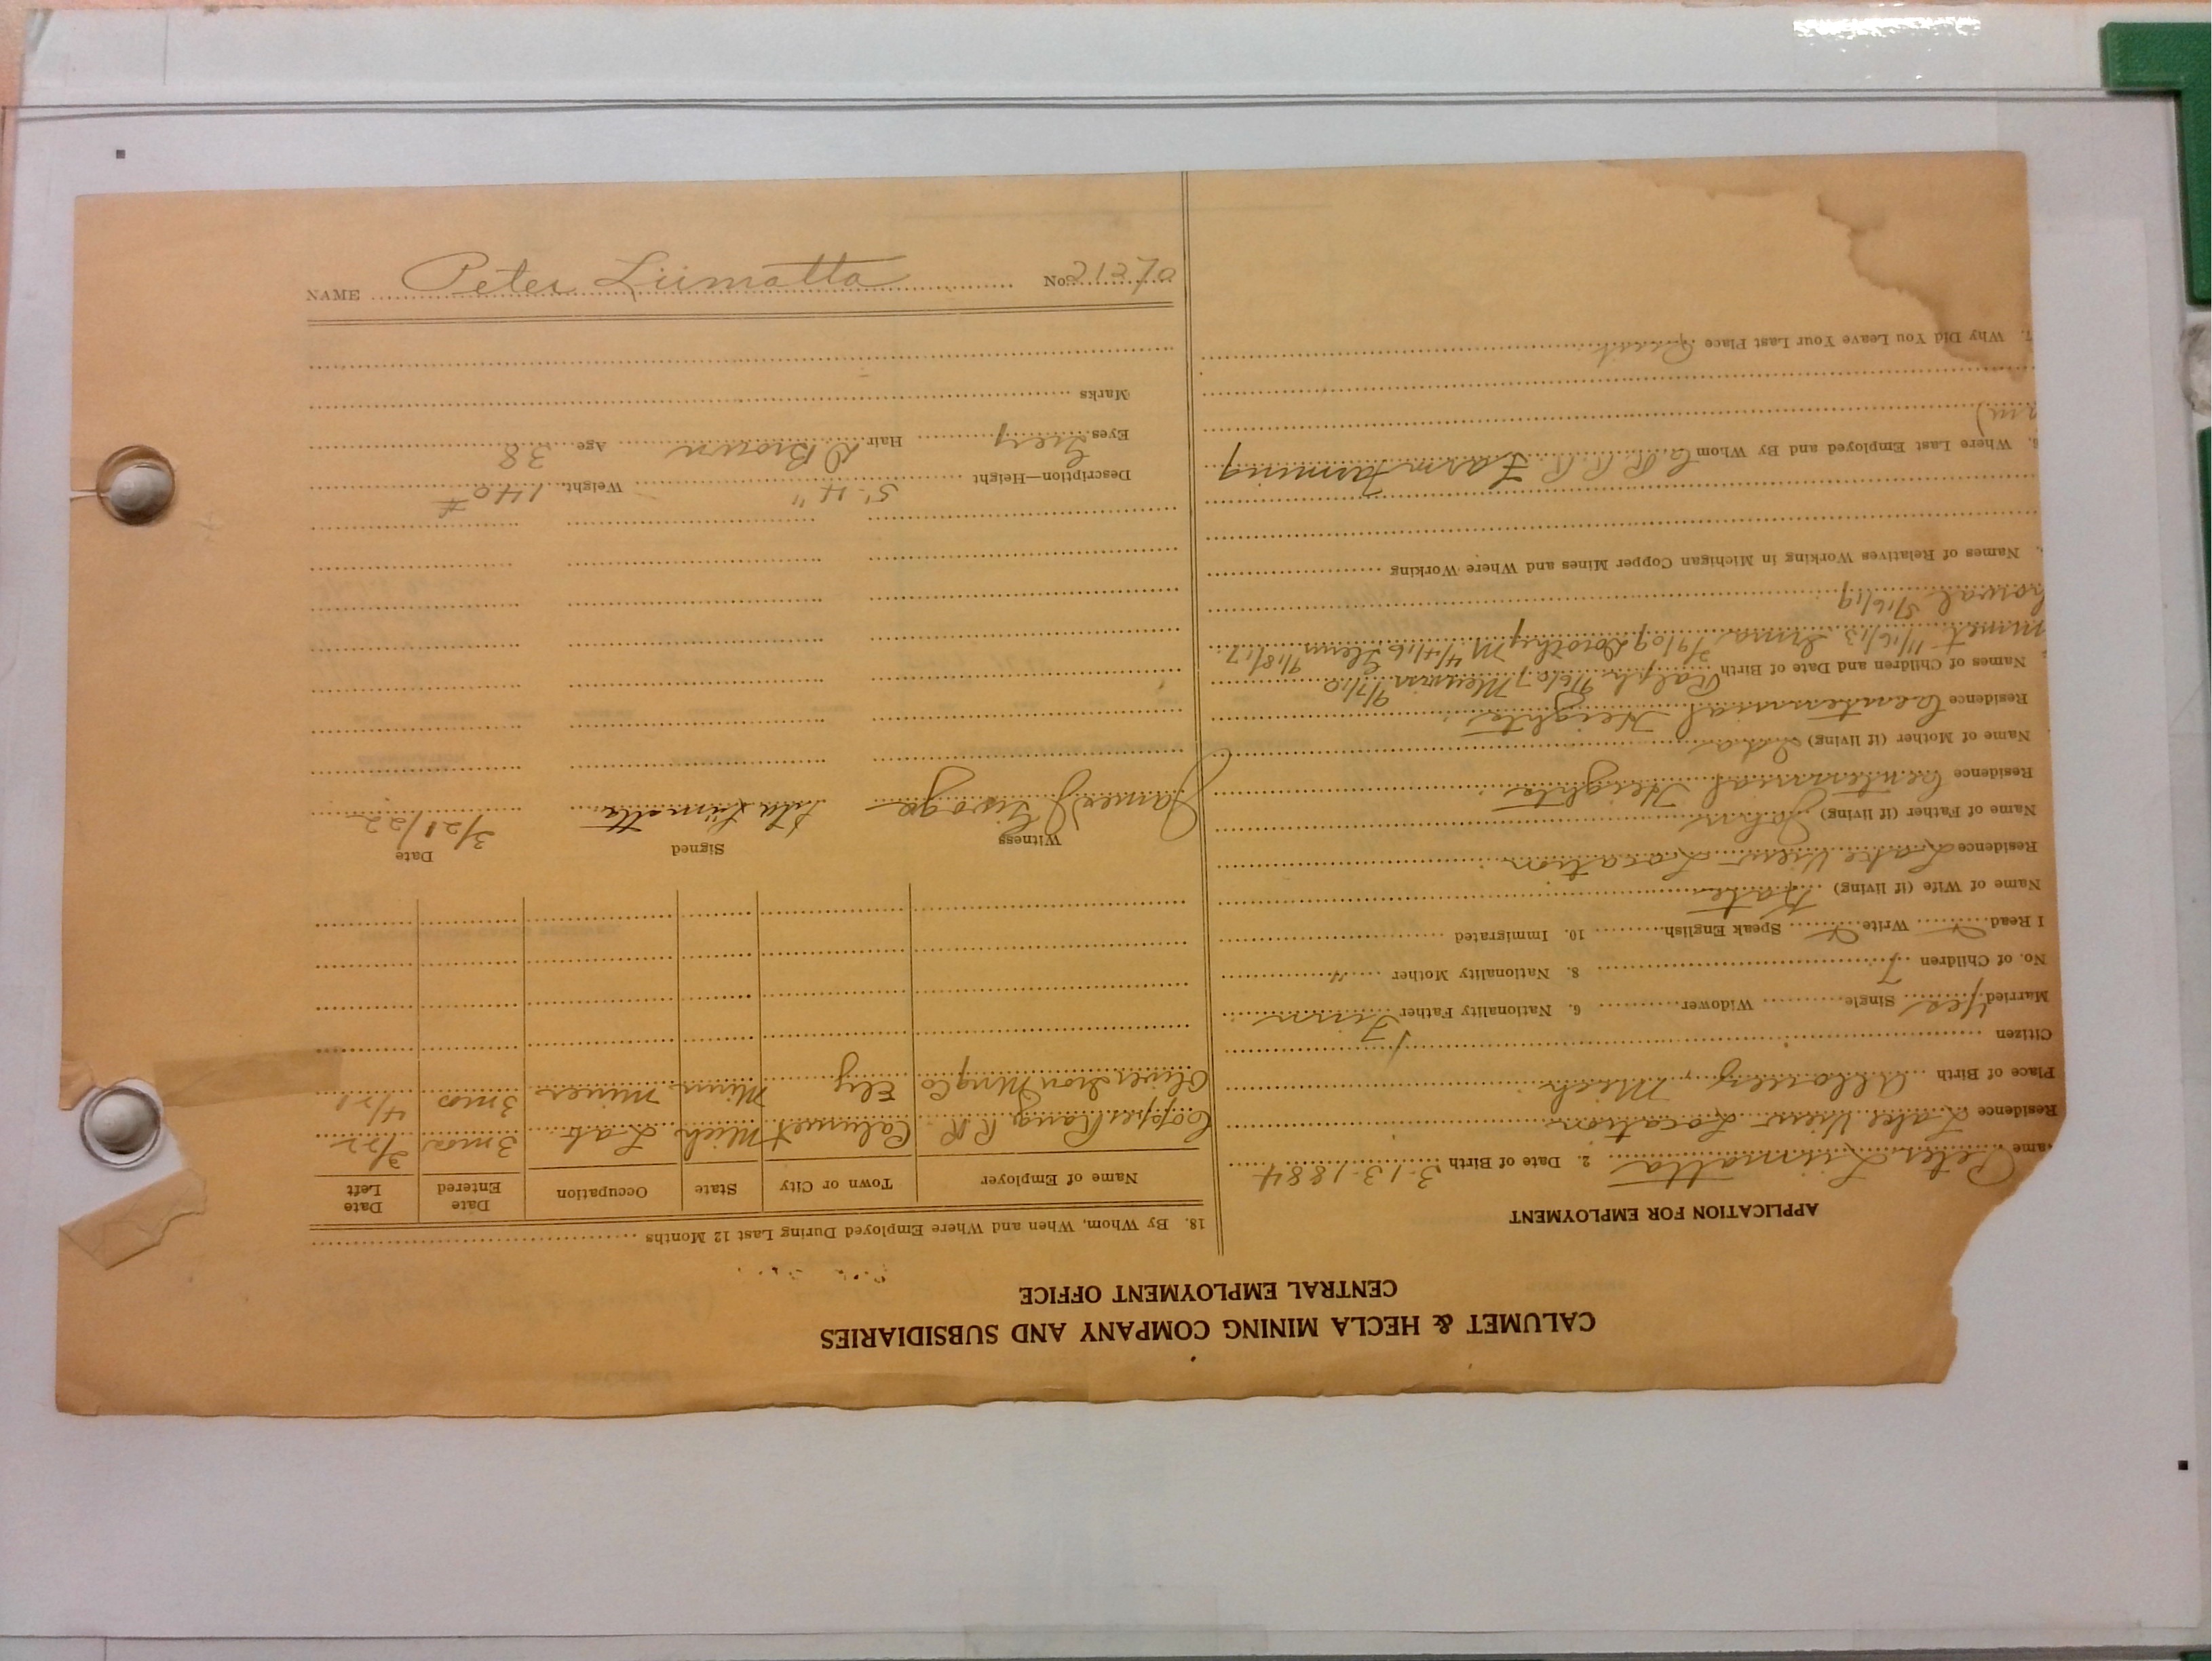 CALUMET & HECLA MINING COMPANY AND SUBSIDIARIES
CENTRAL EMPLOYMENT OFFICE
APPLICATION FOR EMPLOYMENT
ame Peter Liimatta 2. Date of Birth 3-13-1884
Residence Lake View Location
Place of Birth Allouez, Mich
Citizen
Married Yes Single Widower 6. Nationality Father Finn
No. of Children 7 8. Nationality Mother "
I Read Write Speak English 10. Immigrated
Name of Wife (if living) Kate
Residence Lake View Location
Name of Father (if living) John
Residence Centennial Heights
Name of Mother (if living) Ida
Residence Centennial Heights
Names of Children and Date of Birth Ralph 9/6/07 9/7/10
11/16/13 Irma 3/9/09 Dorothy M 4/4/16 Glenn 9/18/17
5/16/19
Names of Relatives Working in Michigan Copper Mines and Where Working
6. Where Last Employed and By Whom C.R.R.R. Farm Farming
7. Why Did You Leave Your Last Place
18. By Whom, When and Where Employed During Last 12 Months
Name of Employer Town or City State Occupation Date Entered Date Left
Copper Range R R Calumet Mich Lab 3 mos 3/22
Oliver Iron Ming Co Ely Minn Miner 3 mos 4/21
Witness Signed Date
James Liimatta 3/21/22
Description—Height 5' 4" Weight 140 #
Eyes Grey Hair D Brown Age 38
Marks
NAME Peter Liimatta No. 21370